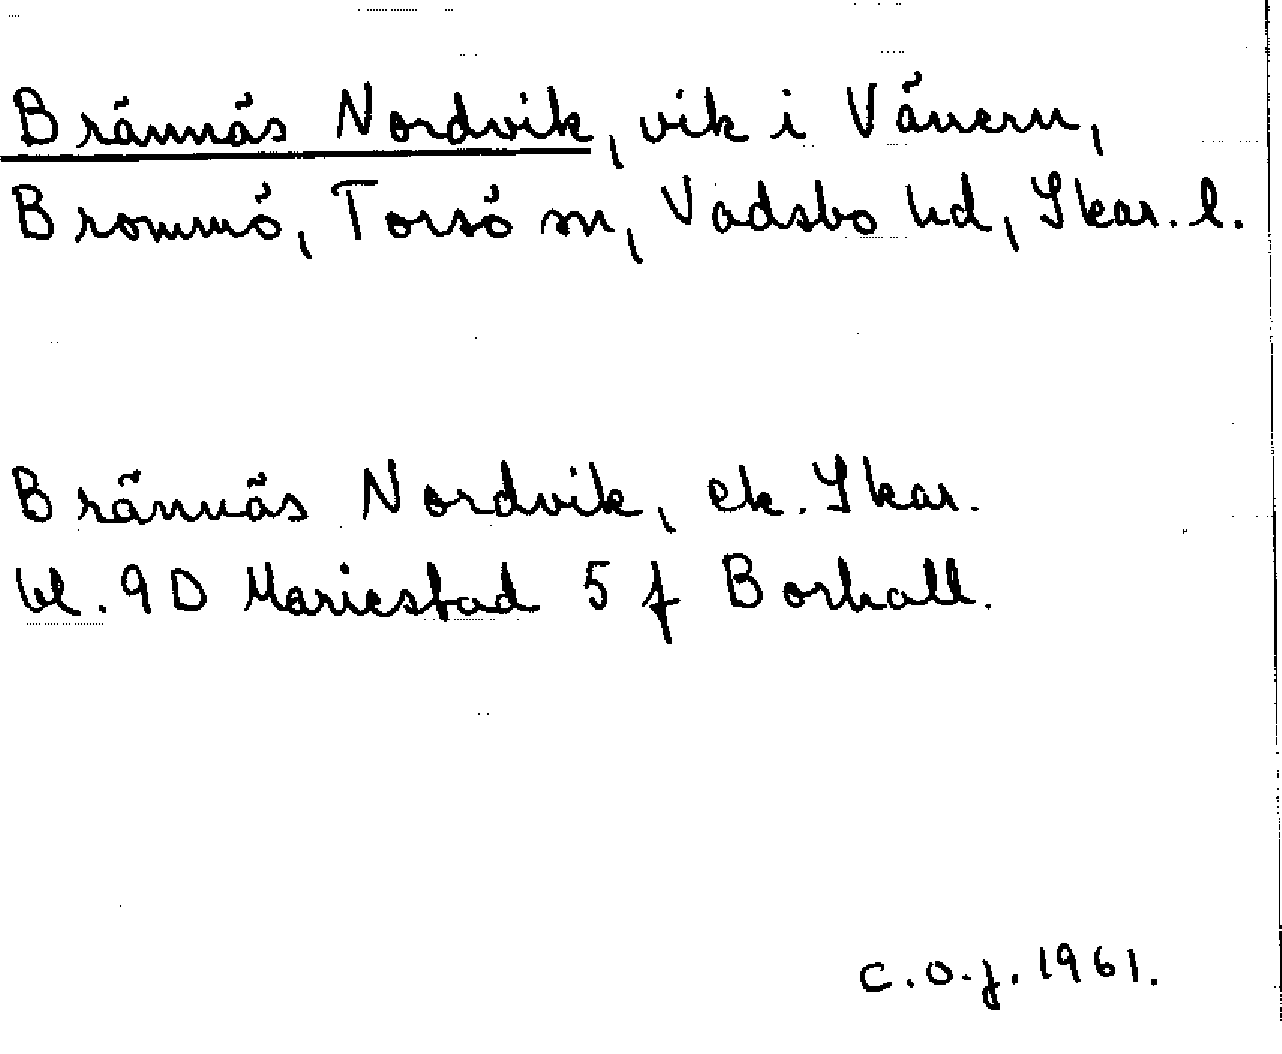 Brännäs Nordvik, vik i Vänern,
Brommö, Torsö sn, Vadsbo hd, Skar. l.
Brännäs Nordvik, ek. Skar.
bl. 9D Mariestad 5 f Borhall.
C.O.J. 1961.